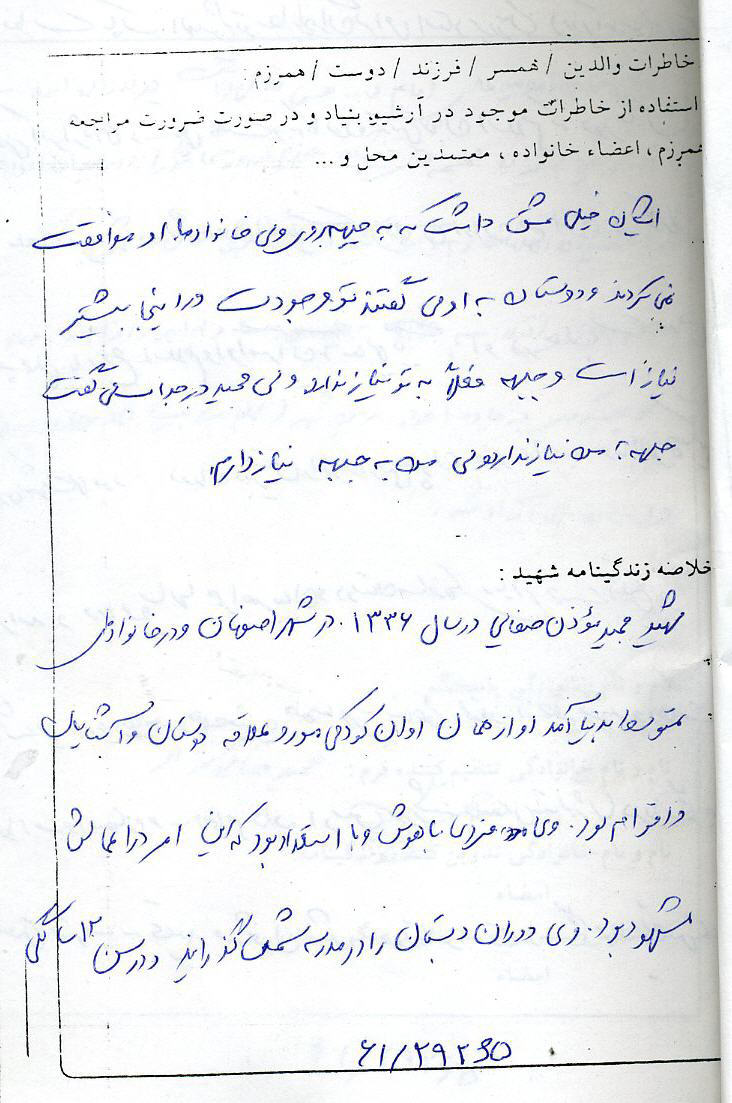 خاطرات والدین / همسر / فرزند / دوست / همرزم
استفاده از خاطرات موجود در آرشیو بنیاد و در صورت ضرورت مراجعه
همرزم ، اعضاء خانواده ، معتمدین محل و ...
ایشان خیلی عشق داشت که به جبهه برود ولی خانواده با او موافقت
نمی کردند و دوستان به او می گفتند تو وجودت در اینجا بیشتر
نیاز است و جبهه فعلاً به تو نیاز ندارد ولی مجید در جواب می گفت
جبهه به من نیاز ندارد ولی من به جبهه نیاز دارم.
خلاصه زندگینامه شهید :
شهید مجید مؤذن صفایی در سال ۱۳۳۶ در شهر اصفهان و در خانواده ای
متوسط بدنیا آمد او از همان اوان کودکی مورد علاقه دوستان و آشنایان
و اقوام بود. وی فردی باهوش و با استعداد بود که این امر در اعمالش
مشهود بود. وی دوران دبستان را در مدرسه گذراند و در سن ۱۲ سالگی
۶۱/۲۹۲۳۵